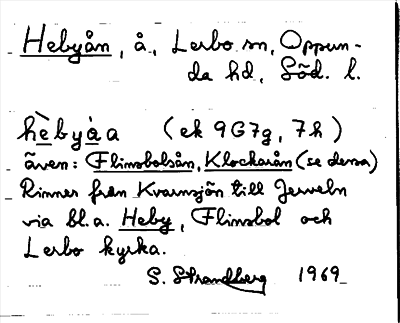 Hebyån, å, Lerbo sn, Oppun-
da hd, Söd. l.
hèbyàa (ek 9G7g, 7h)
även: Flinsbolsån, Klockarån (se dessa)
Rinner från Kvarnsjön till
via bl.a. Heby, Flinsbol och
Lerbo kyrka.
S. Strandberg 1969